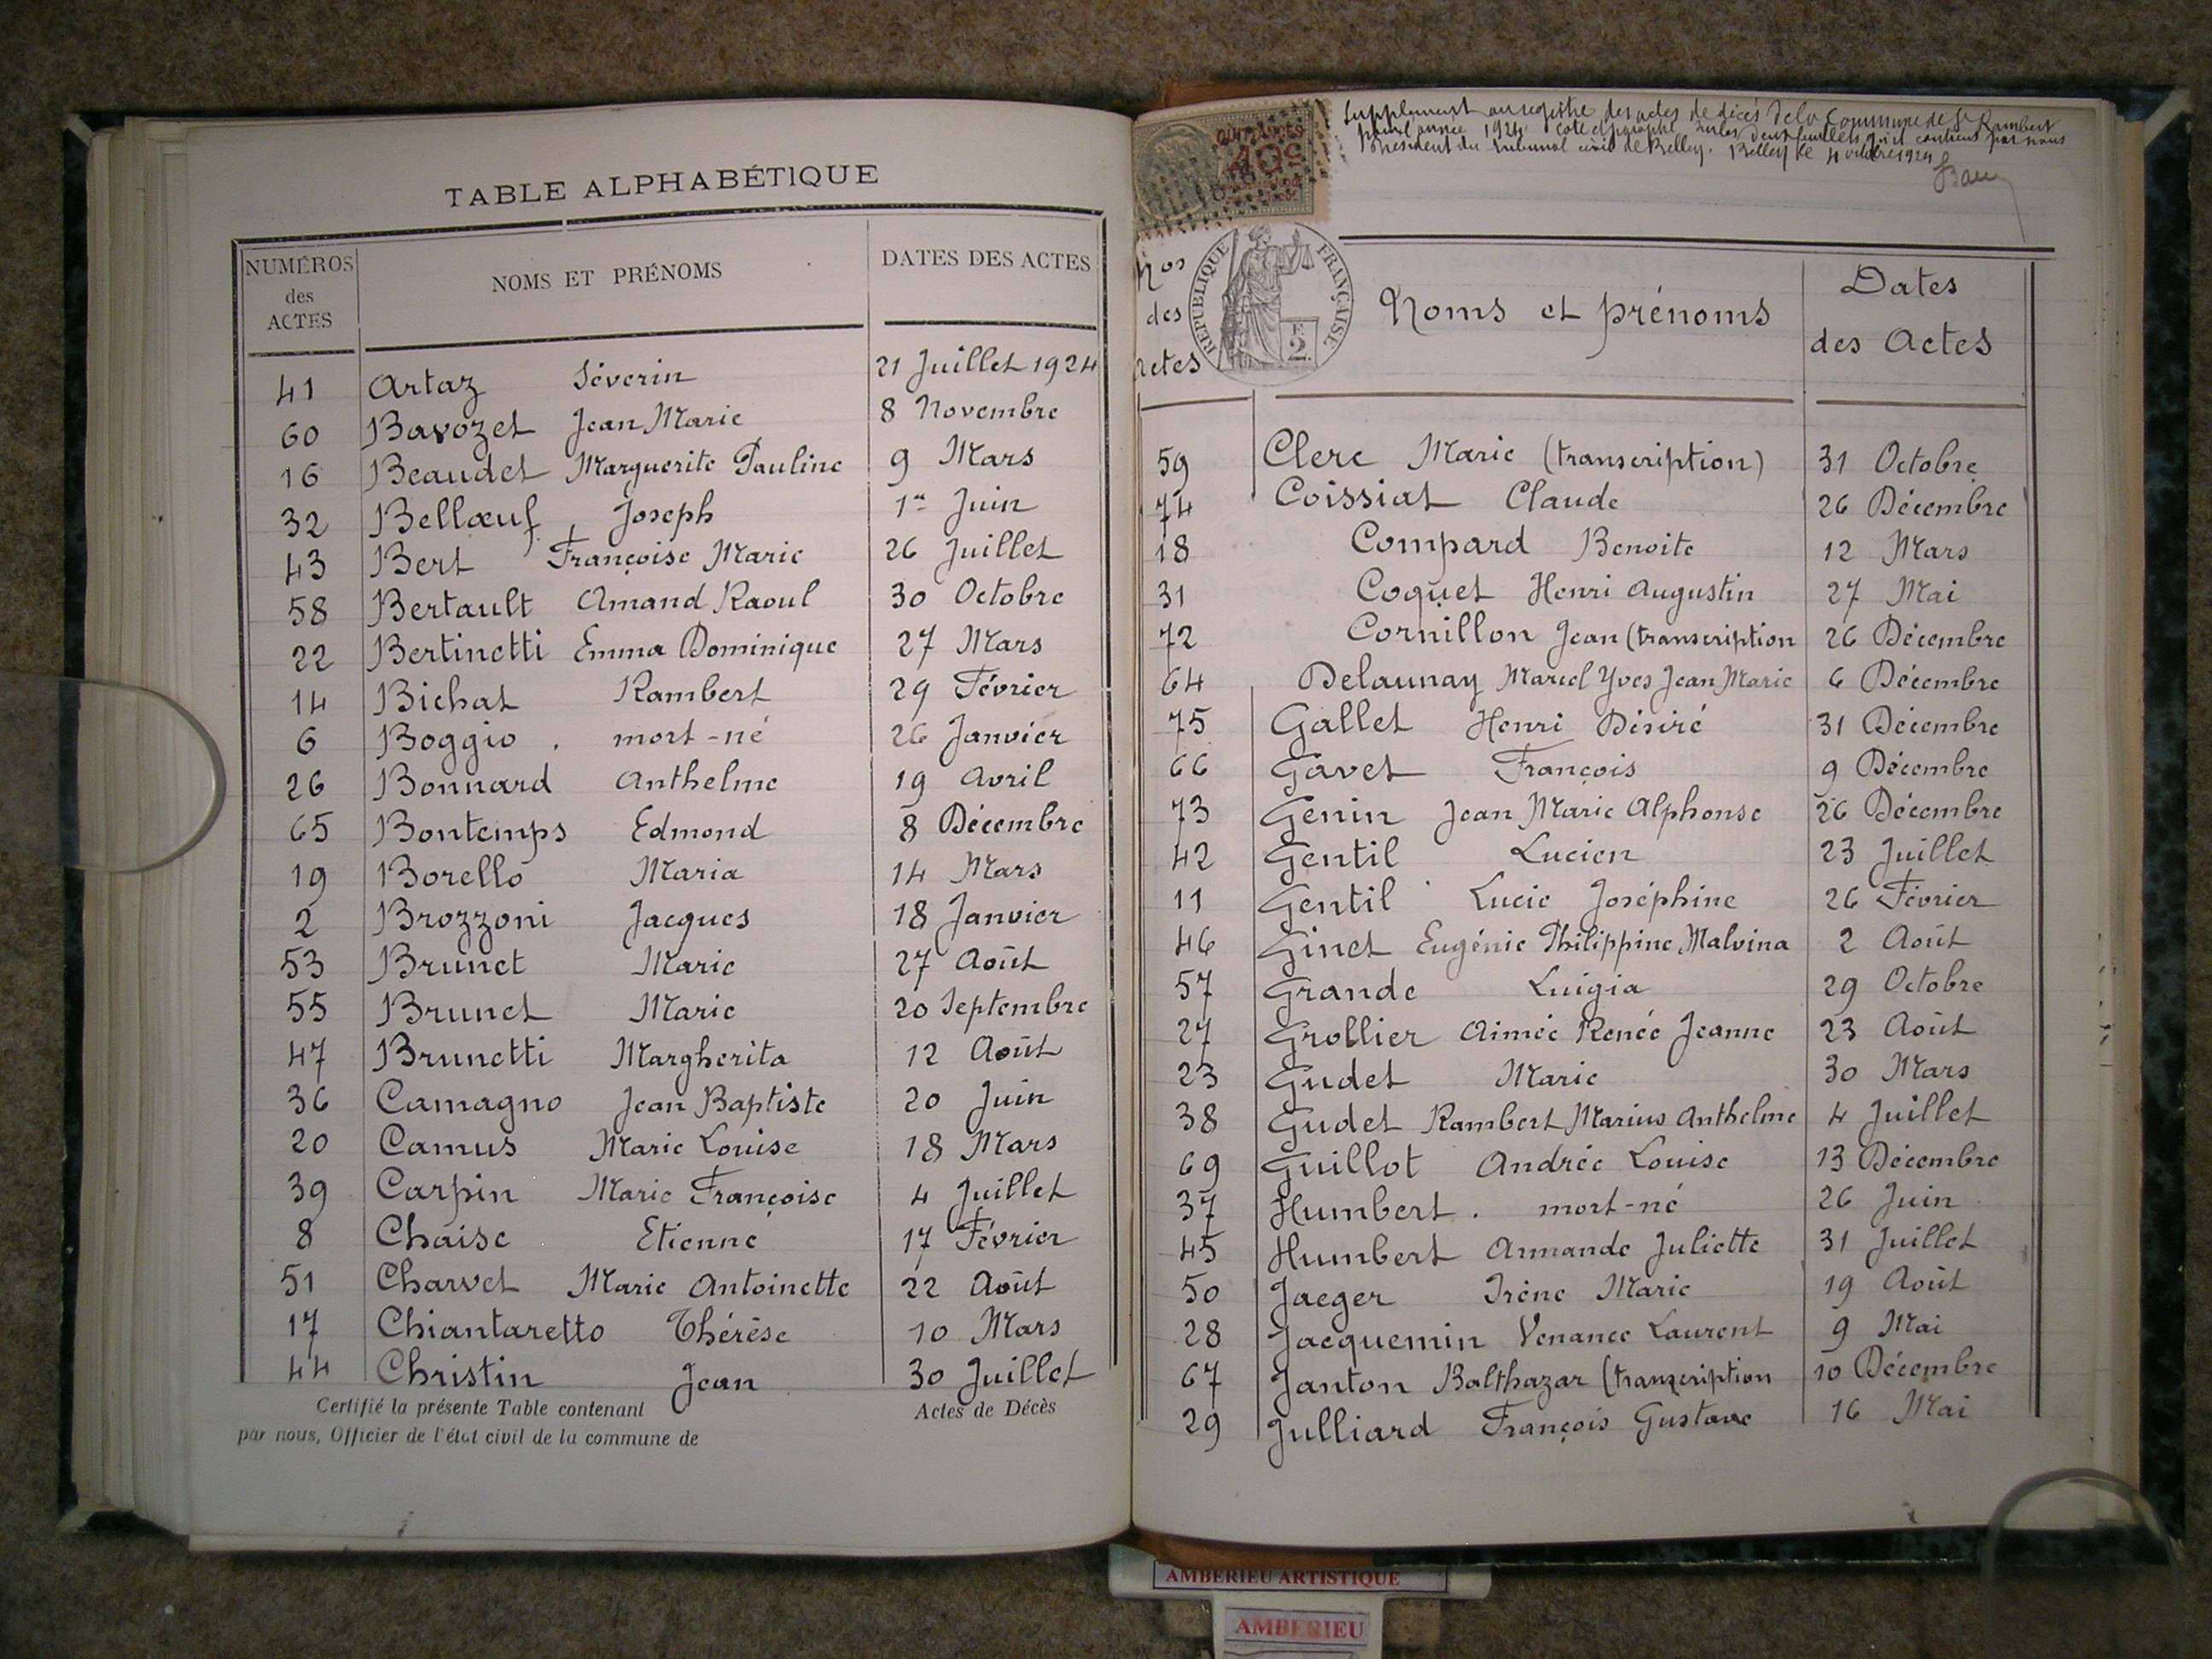 TABLE ALPHABÉTIQUE
NUMÉROS des ACTES NOMS ET PRÉNOMS DATES DES ACTES
41 Artaz Séverin 21 Juillet 1924
60 Bavozet Jean Marie 8 Novembre
16 Beaudet Marguerite Pauline 9 Mars
32 Bellœuf Joseph 1er Juin
43 Bert Françoise Marie 26 Juillet
58 Bertault Amand Raoul 30 Octobre
22 Bertinetti Emma Dominique 27 Mars
14 Bichat Rambert 29 Février
6 Boggio . mort-né 26 Janvier
26 Bonnard Anthelme 19 Avril
65 Bontemps Edmond 8 Décembre
19 Borello Maria 14 Mars
2 Brozzoni Jacques 18 Janvier
53 Brunet Marie 27 Août
55 Brunet Marie 20 Septembre
47 Brunetti Margherita 12 Août
36 Camagno Jean Baptiste 20 Juin
20 Camus Marie Louise 18 Mars
39 Carpin Marie Françoise 4 Juillet
8 Chaise Etienne 17 Février
51 Charvet Marie Antoinette 22 Août
17 Chiantaretto Thérèse 10 Mars
44 Christin Jean 30 Juillet
Certifié la présente Table contenant Actes de Décès
par nous, Officier de l'état civil de la commune de
Supplément au registre des actes de décès de la Commune de St Rambert
pour l'année 1924 coté et paraphé sur les deux feuillets qu'il contient par nous
Président du tribunal civil de Belley. Belley le 4 octobre 1924
QUITTANCES
RÉPUBLIQUE FRANÇAISE
E
2
Nos des actes Noms et prénoms Dates des Actes
59 Clerc Marie (transcription) 31 Octobre
74 Coissiat Claude 26 Décembre
18 Compard Benoite 12 Mars
31 Coquet Henri Augustin 27 Mai
72 Cornillon Jean (transcription 26 Décembre
64 Delaunay Marcel Yves Jean Marie 6 Décembre
75 Gallet Henri Désiré 31 Décembre
66 Gavet François 9 Décembre
73 Genin Jean Marie Alphonse 26 Décembre
42 Gentil Lucien 23 Juillet
11 Gentil Lucie Joséphine 26 Février
46 Ginet Eugénie Philippine Malvina 2 Août
57 Grande Luigia 29 Octobre
27 Grollier Aimée Renée Jeanne 23 Août
23 Gudet Marie 30 Mars
38 Gudet Rambert Marius Anthelme 4 Juillet
69 Guillot Andrée Louise 13 Décembre
37 Humbert . mort-né 26 Juin
45 Humbert Armande Juliette 31 Juillet
50 Jaeger Irène Marie 19 Août
28 Jacquemin Venance Laurent 9 Mai
67 Janton Balthazar (transcription 10 Décembre
29 Julliard François Gustave 16 Mai
AMBERIEU ARTISTIQUE
AMBERIEU